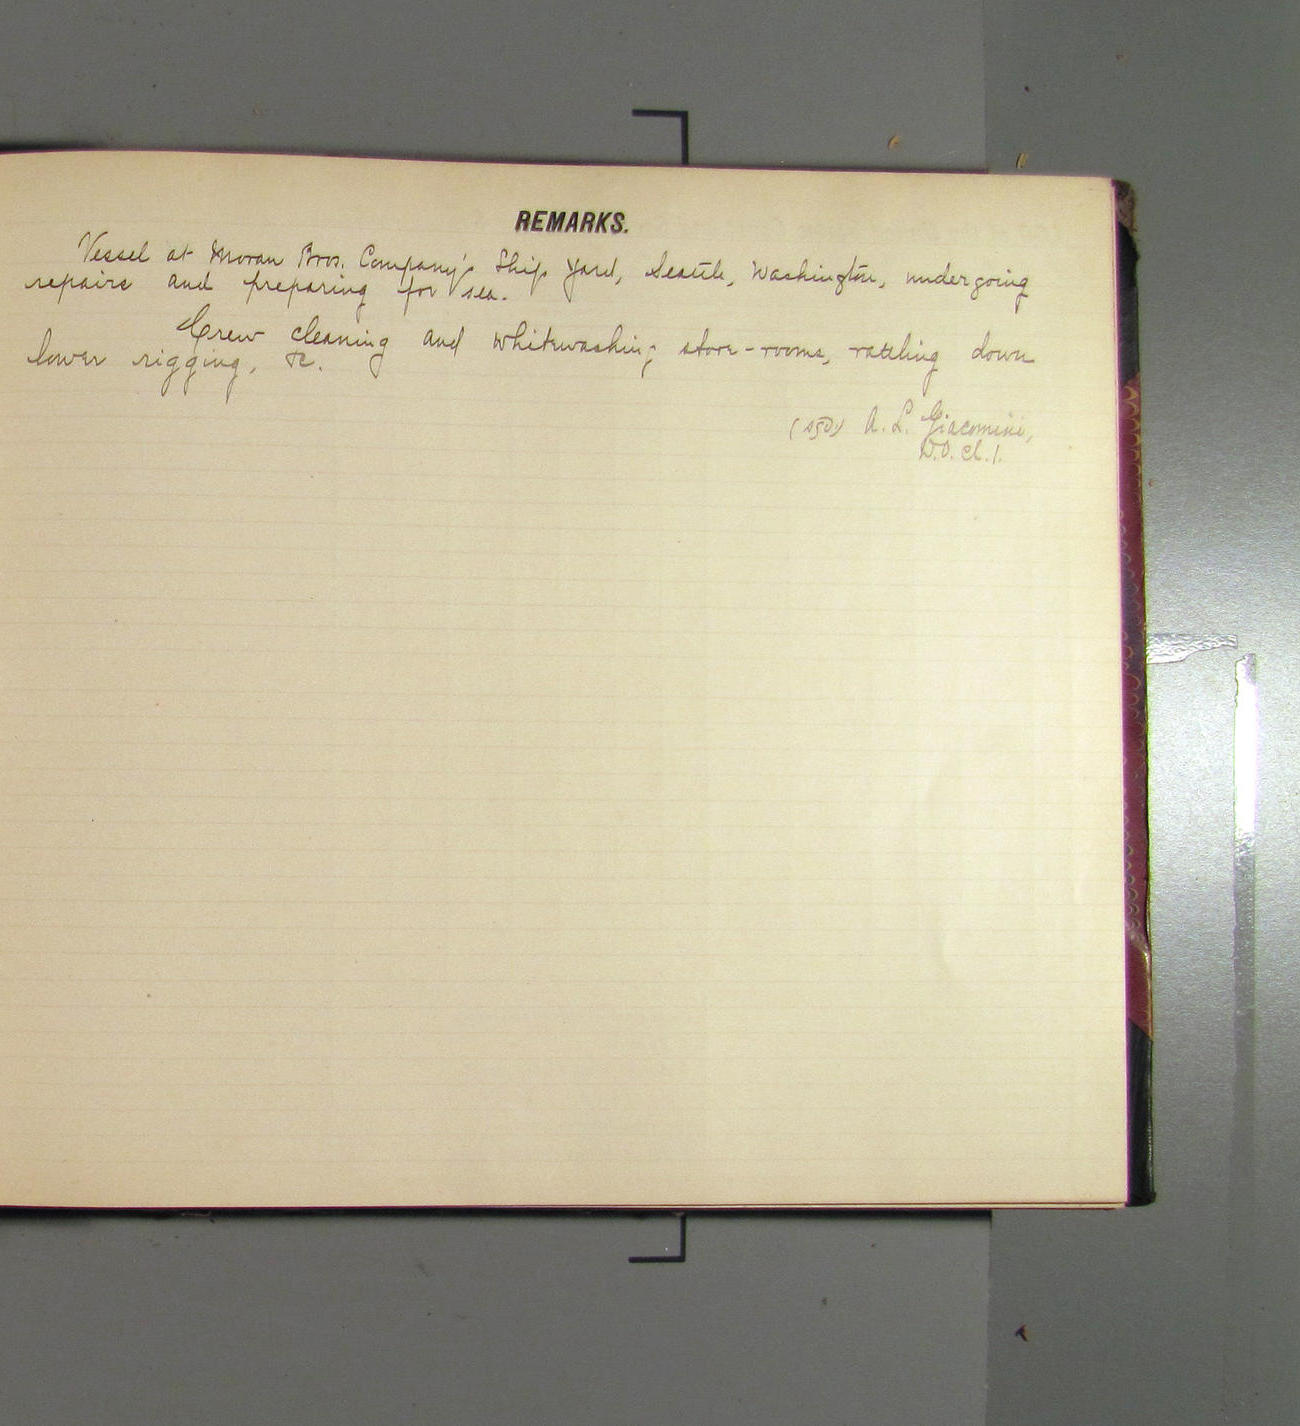 REMARKS.
Vessel at Moran Bros. Company's Ship Yard, Seattle, Washington, undergoing
repairs and preparing for sea.
Crew cleaning and whitewashing store-rooms, rattling down
lower rigging, &c.
(sgd) A. L. Giacomini,
W.O. Cl. 1.